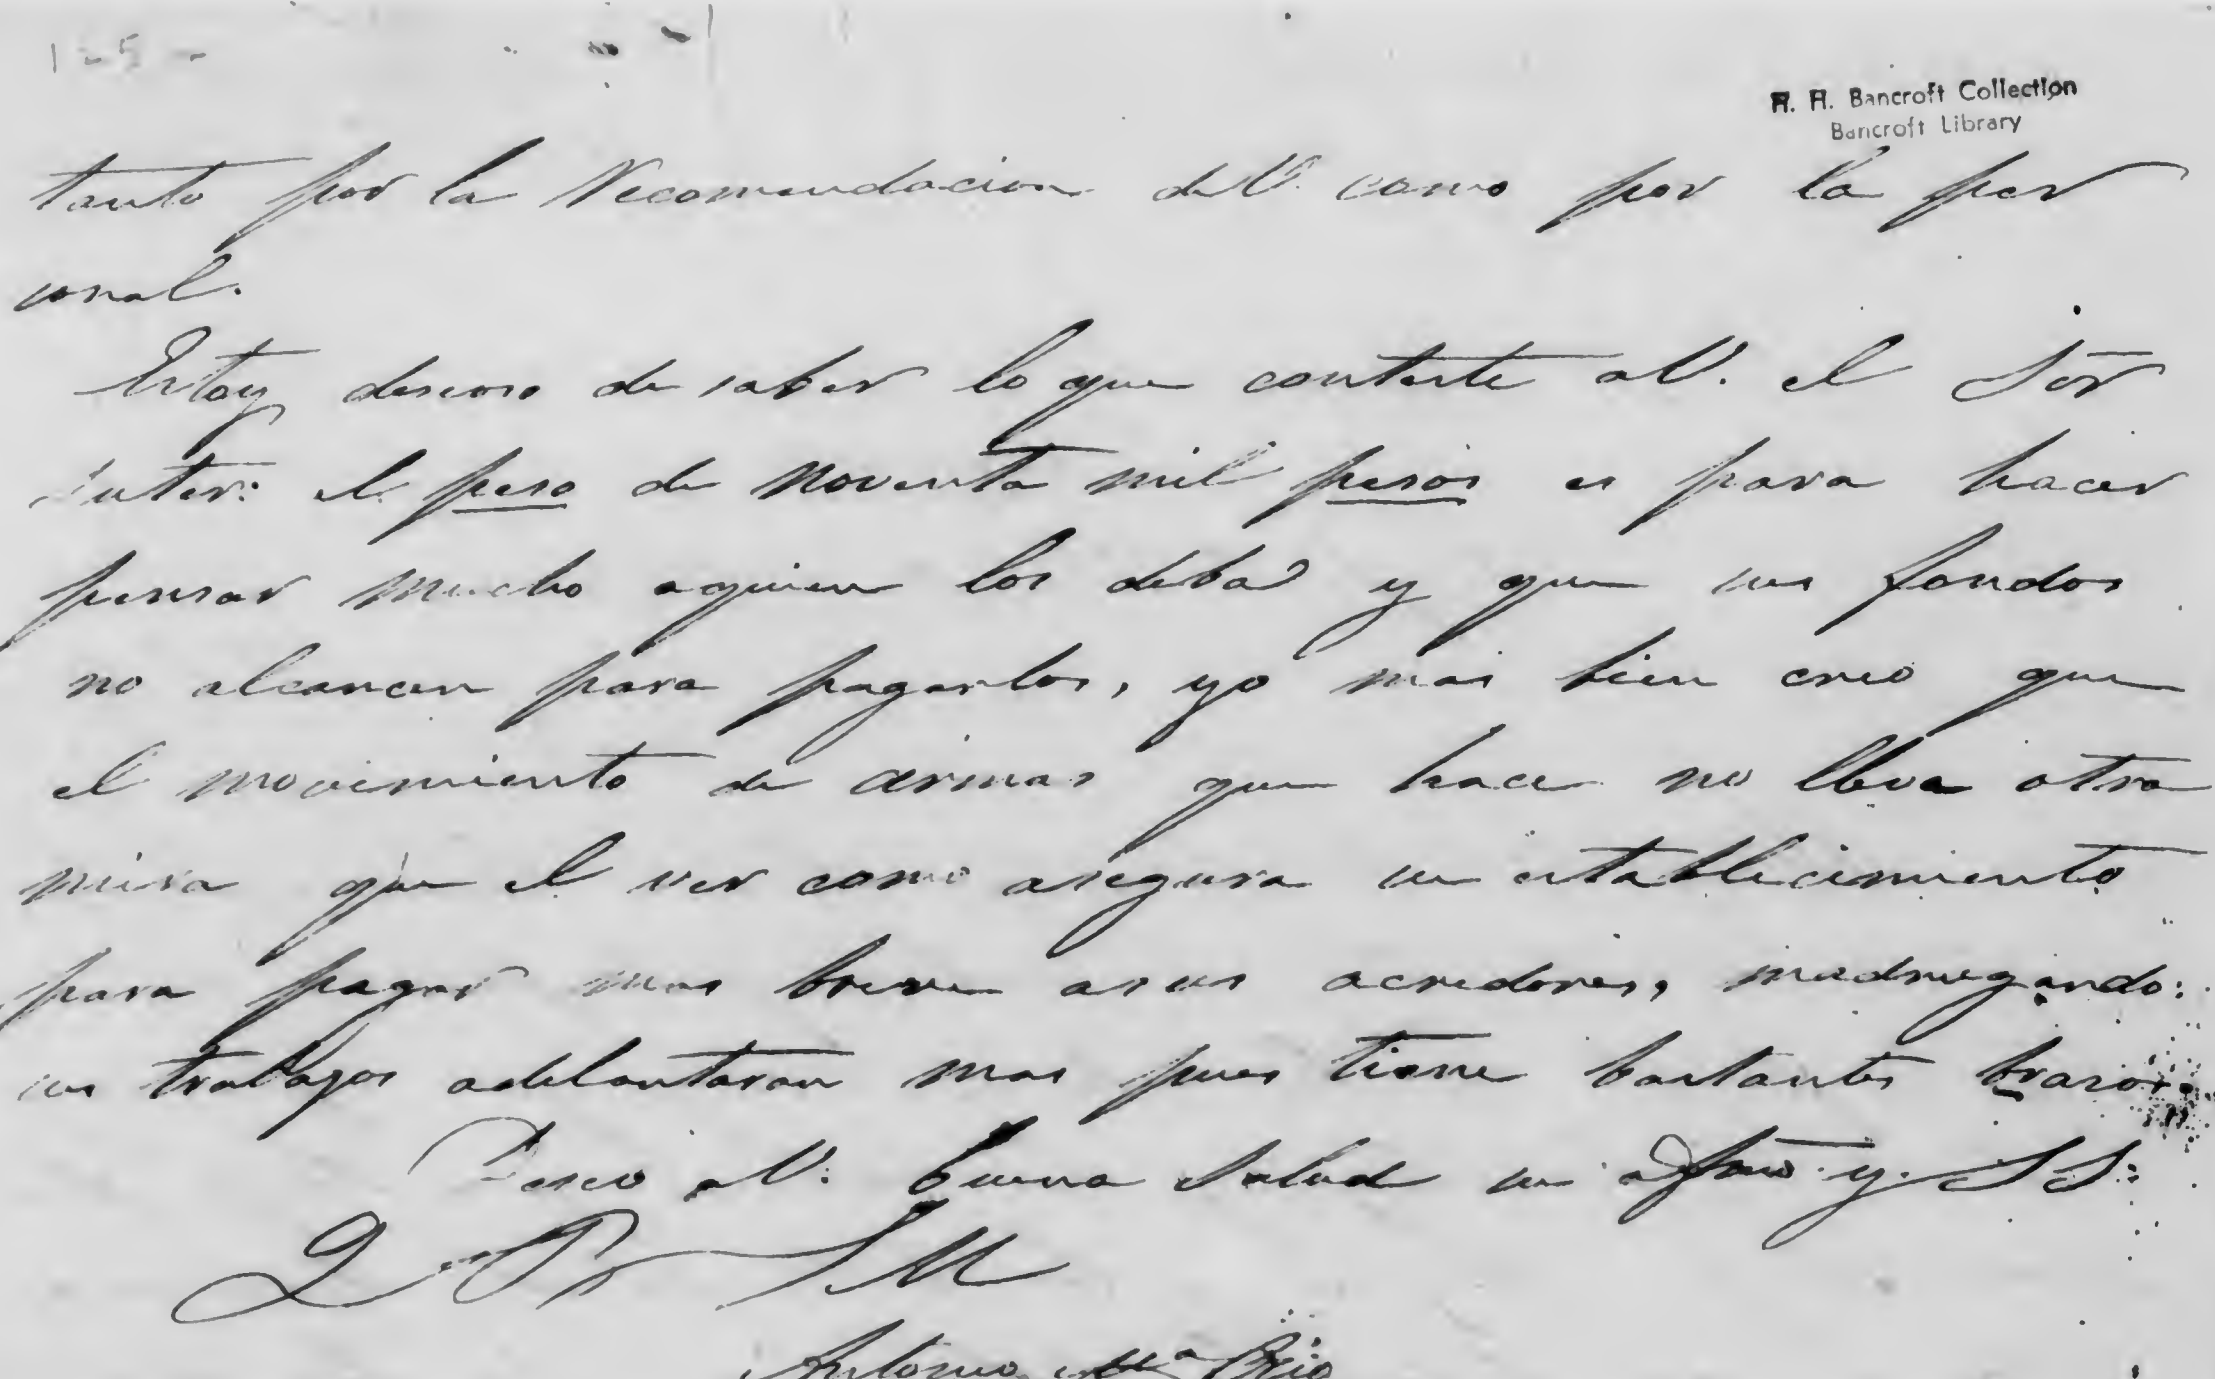 125
H. H. Bancroft Collection
Bancroft Library
tanto por la Recomendacion de V. como por la per
sonal.
Estoy deseoso de saber lo que conteste a V. el Sõr
Suter: el peso de noventa mil pesos es para hacer
pensar mucho aquien los deba y que sus fondos
no alcancen para pagarlos, yo mas bien creo que
el movimiento de armas que hace no lleva otra
mira que el ver como asegura su establecimiento
para pagar mas breve asus acredores, madrugando:
sus trabajos adelantaran mas pues tiene bastantes brasos.
Deseo a V. buena Salud su afmo y. S S:
Q B S M
Antonio Ma Osio